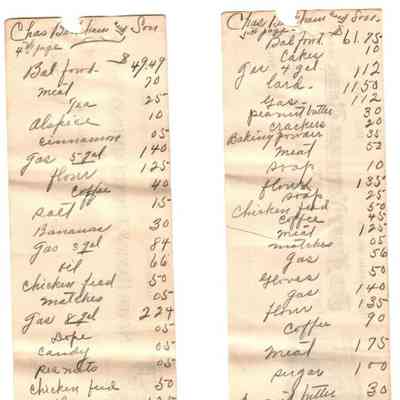 Chas and Sons
4th page
Bal ford. $ 49.49
meat 70
Tea 25
Alspice 10
Cinnamon 05
Gas 5 gal 140
flour 125
Coffee 40
salt 15
Bananas 30
Gas 3 gal 84
oil 66
chicken feed 50
matches 05
Gas 8 gal 224
Dope 05
Candy 05
peanuts 05
chicken feed 50
Chas and Sons
5th page
Bal ford. $ 61.75
Cakes 10
Gas 4 gal 112
lard. 1150
Gas. 112
peanut butter 30
crackers 20
Baking powder 35
meat 50
soap 10
flour 135
soap 25
Chicken feed 50
Coffee 45
meat 125
matches 05
Gas 56
Gloves 50
Gas 140
flour 135
Coffee 90
meat 175
sugar 100
butter 30